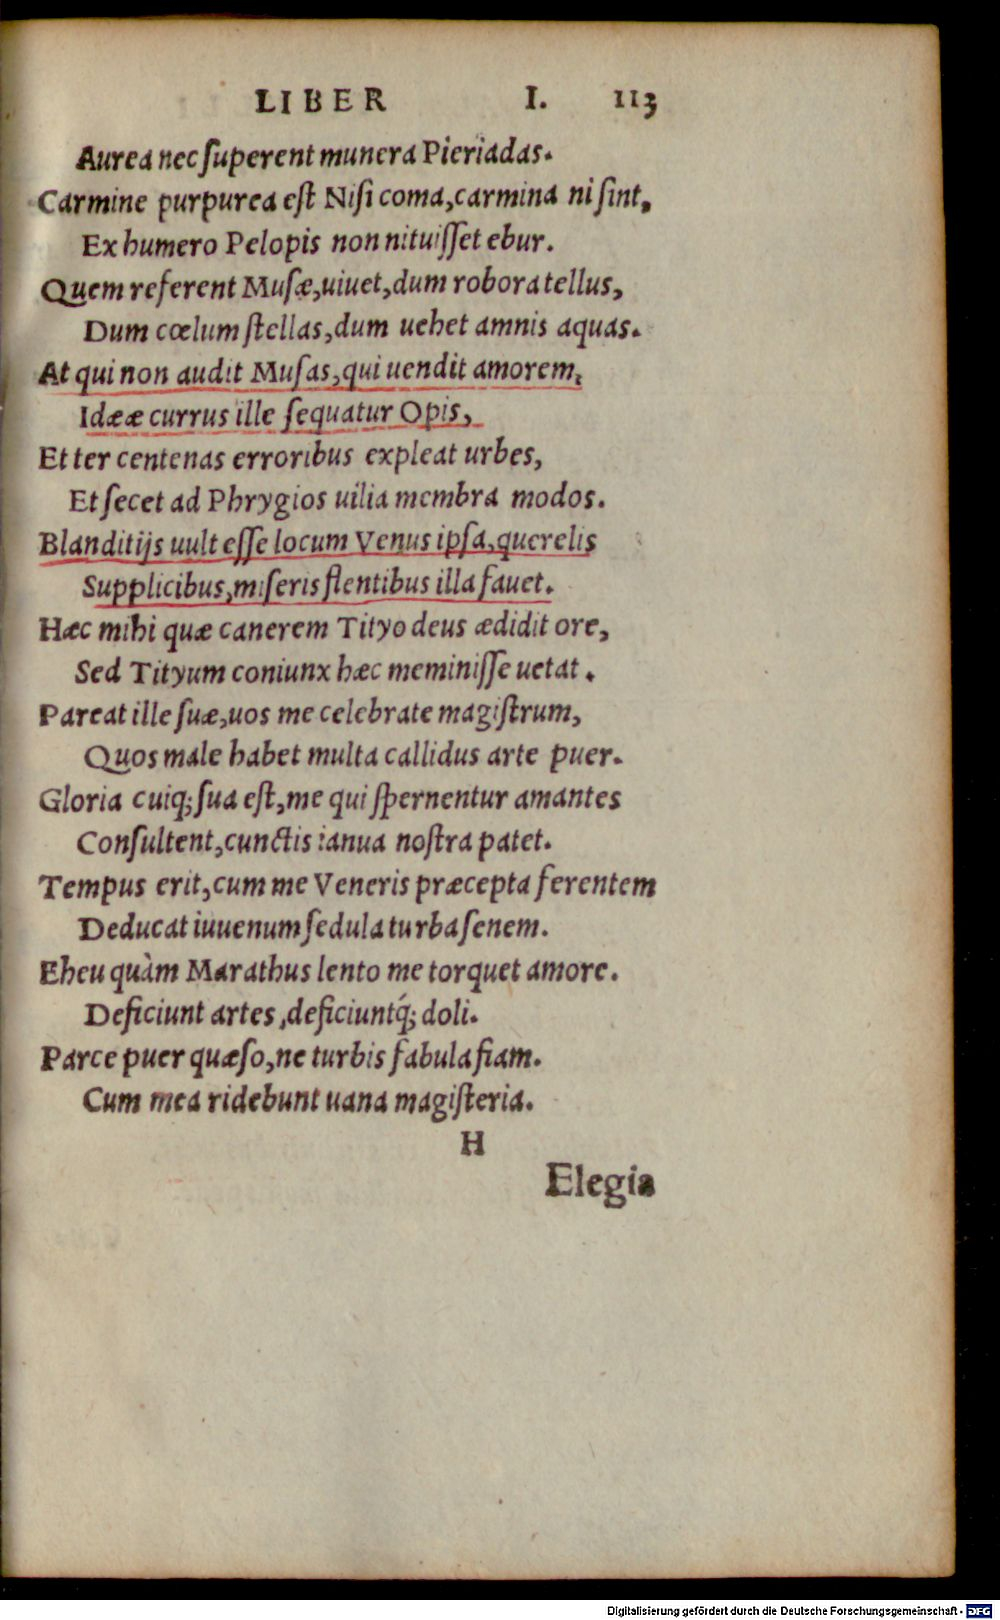 LIBER I. 113
Aurea nec ſuperent munera Pieriadas.
Carmine purpurea eſt Niſi coma, carmina ni ſint,
Ex humero Pelopis non nituiſſet ebur.
Quem referent Muſæ, uiuet, dum robora tellus,
Dum cœlum ſtellas, dum uehet amnis aquas.
At qui non audit Muſas, qui uendit amorem,
Idææ currus ille ſequatur Opis,
Et ter centenas erroribus expleat urbes,
Et ſecet ad Phrygios uilia membra modos.
Blanditijs uult eſſe locum Venus ipſa, querelis
Supplicibus, miſeris flentibus illa fauet.
Hæc mihi quæ canerem Tityo deus ædidit ore,
Sed Tityum coniunx hæc meminiſſe uetat.
Pareat ille ſuæ, uos me celebrate magiſtrum,
Quos male habet multa callidus arte puer.
Gloria cuiq; ſua eſt, me qui ſpernentur amantes
Conſultent, cunctis ianua noſtra patet.
Tempus erit, cum me Veneris præcepta ferentem
Deducat iuuenum ſedula turba ſenem.
Eheu quàm Marathus lento me torquet amore.
Deficiunt artes, deficiuntq́; doli.
Parce puer quæſo, ne turbis fabula fiam.
Cum mea ridebunt uana magiſteria.
H
Elegia
Digitalisierung gefördert durch die Deutsche Forschungsgemeinschaft - DFG